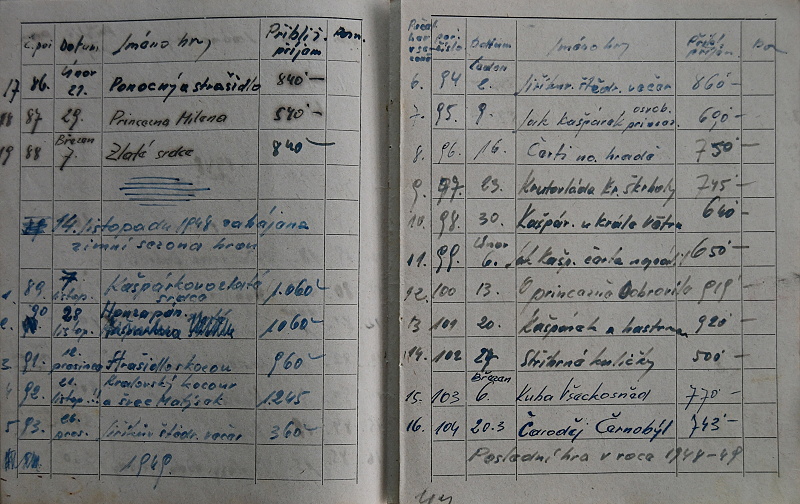 č. poř Datum Jméno hry Přibliž. příjem Pozn.
17 86. Únor 22. Ponocný a strašidlo 840'—
18 87 29. Princezna Milena 540'—
19 88 Březen 7. Zlaté srdce 840—
14. listopadu 1948 zahájena
zimní sezona hrou
1. 89. 7 listop. Kašpárkovo zlaté srdce 1.060—
2. 90 28 listop. Honza pán. 1060—
3. 91. 12. prosince Strašidlo s kocou 960—
4 92. listop. Královský kocour a švec Matýsek 1.245
5. 93. 26. pros. Jiříkův štědr. večer 360—
1949.
pořad. číslo Datum Jméno hry Přibl. příjem
6. 94 Leden 2. Jiříkův štědr. večer 860—
7. 95. 9. Jak Kašpárek osvob. princez. 690—
8. 96. 16. Čerti na hradě 750—
9. 97. 23. Krutovláda Kr. Škrholy 745—
10. 98. 30. Kašpár. u krále Větru 640—
11. 99. Únor 6. Jak Kašp. čerta napálil 650—
12. 100 13. O princezně Dobromile 919—
13 101 20. Kašpárek a hastrman 920—
14. 102 27 Stříbrné kuličky 500—
15. 103 Březen 6. Kuba Všeckosněd 770—
16. 104 20.3 Čaroděj Černobýl 743—
Poslední hra v roce 1948-49